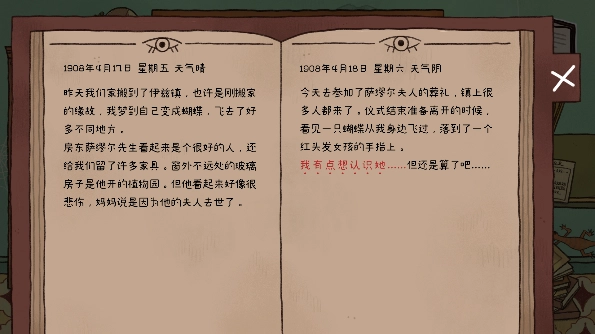 1908年4月17日 星期五 天气晴
昨天我们家搬到了伊兹镇，也许是刚搬家
的缘故，我梦到自己变成蝴蝶，飞去了好
多不同地方。
房东萨缪尔先生看起来是个很好的人，还
给我们留了许多家具。窗外不远处的玻璃
房子是他开的植物园。但他看起来好像很
悲伤，妈妈说是因为他的夫人去世了。
1908年4月18日 星期六 天气阴
今天去参加了萨缪尔夫人的葬礼，镇上很
多人都来了。仪式结束准备离开的时候，
看见一只蝴蝶从我身边飞过，落到了一个
红头发女孩的手指上。
我有点想认识她……但还是算了吧……